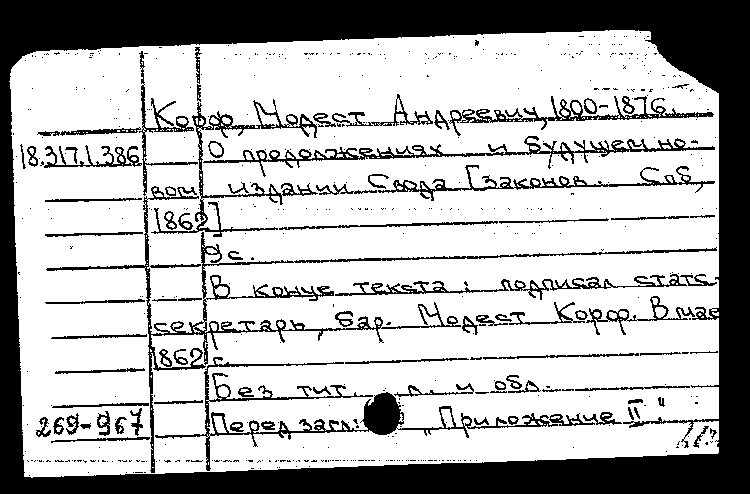 Корф, Модест Андреевич, 1800-1876.
18.317.1.386 О продолжениях и будущем но-
вом издании Свода [законов. Спб,
1862]
9 с.
В конце текста: подписал статс-
секретарь, бар. Модест Корф. В мае
1862 г.
Без тит. л. и обл.
269-967 Перед загл: „Приложение II"